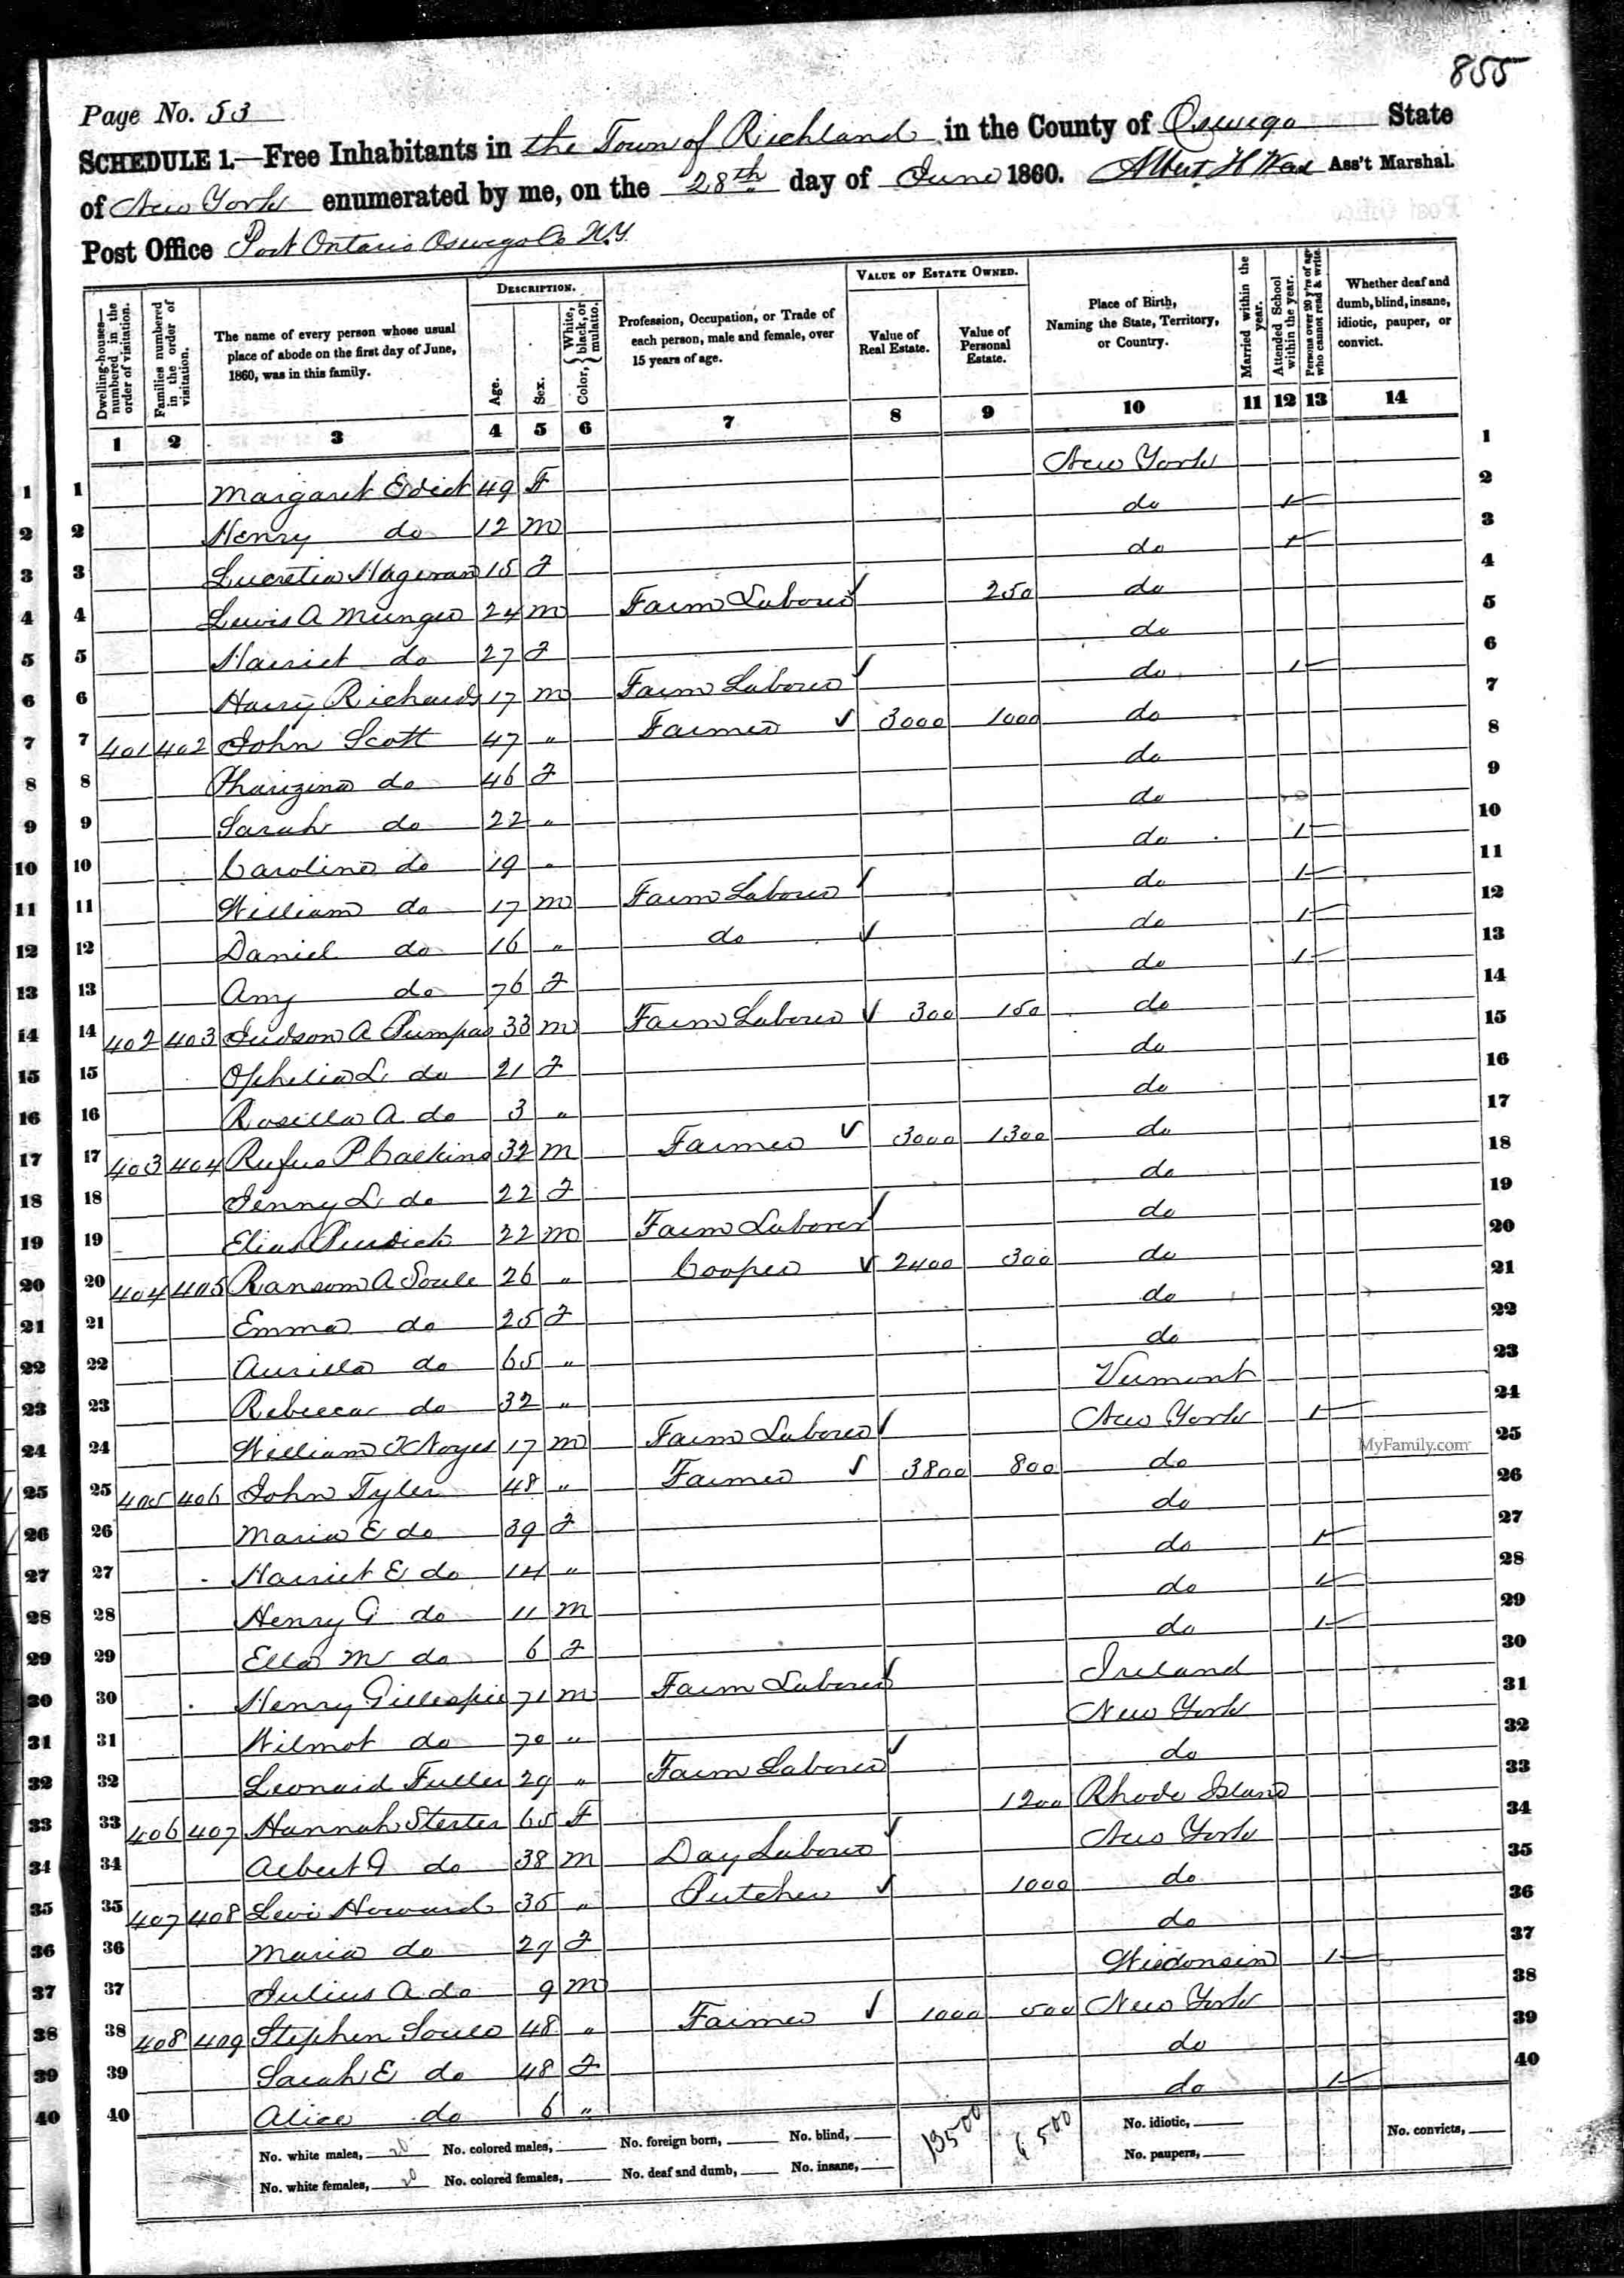 855
Page No. 53
SCHEDULE 1.—Free Inhabitants in the Town of Richland in the County of Oswego State
of New York enumerated by me, on the 28th day of June 1860. Albert H Ass't Marshal.
Post Office Port Ontario Oswego Co N.Y.
Dwelling-houses—numbered in the order of visitation. Families numbered in the order of visitation. The name of every person whose usual place of abode on the first day of June, 1860, was in this family. DESCRIPTION. Age. Sex. Color, { White, black, or mulatto. Profession, Occupation, or Trade of each person, male and female, over 15 years of age. VALUE OF ESTATE OWNED. Value of Real Estate. Value of Personal Estate. Place of Birth, Naming the State, Territory, or Country. Married within the year. Attended School within the year. Persons over 20 y'rs of age who cannot read & write. Whether deaf and dumb, blind, insane, idiotic, pauper, or convict.
1 2 3 4 5 6 7 8 9 10 11 12 13 14
1 1 Margaret Edict 49 F New York 1
2 2 Henry do 12 m do 1 2
3 3 Lucretia Hageman 15 F do 1 3
4 4 Lewis A Munger 24 m Farm Laborer ✓ 250 do 4
5 5 Harriet do 27 F do 5
6 6 Harry Richards 17 m Farm Laborer ✓ do 1 6
7 7 401 402 John Scott 47 " Farmer ✓ 3000 1000 do 7
8 8 do 46 F do 8
9 9 Sarah do 22 " do 9
10 10 Caroline do 19 " do 1 10
11 11 William do 17 m Farm Laborer ✓ do 1 11
12 12 Daniel do 16 " do ✓ do 1 12
13 13 Amy do 76 F do 1 13
14 14 402 403 Judson A 33 m Farm Laborer ✓ 300 150 do 14
15 15 Ophelia L do 21 F do 15
16 16 Rosilla A do 3 " do 16
17 17 403 404 Rufus P Calkins 32 m Farmer ✓ 3000 1300 do 17
18 18 Jenny L do 22 F do 18
19 19 Elias Burdick 22 m Farm Laborer ✓ do 19
20 20 404 405 Ransom A Soule 26 " Cooper ✓ 2400 300 do 20
21 21 Emma do 25 F do 21
22 22 Aurilla do 65 " do 22
23 23 Rebecca do 32 " Vermont 23
24 24 William Noyes 17 m Farm Laborer ✓ New York 1 24
25 25 405 406 John Tyler 48 " Farmer ✓ 3800 800 do 25
MyFamily.com
26 26 Maria E do 39 F do 26
27 27 Harriet E do 14 " do 1 27
28 28 Henry G do 11 m do 1 28
29 29 Ella M do 6 F do 1 29
30 30 Henry Gillespie 71 m Farm Laborer ✓ Ireland 30
31 31 Wilmot do 70 " New York 31
32 32 Leonard Fuller 29 " Farm Laborer ✓ do 32
33 33 406 407 Hannah 65 F 1200 Rhode Island 33
34 34 Albert do 38 m Day Laborer ✓ New York 34
35 35 407 408 Levi Howard 35 " Butcher ✓ 1000 do 35
36 36 Maria do 29 F do 36
37 37 Julius A do 9 m Wisconsin 1 37
38 38 408 409 Stephen Soule 48 " Farmer ✓ 1000 500 New York 38
39 39 Sarah E do 48 F do 39
40 40 Alice do 6 " do 1 40
No. white males, 20 No. colored males, No. foreign born, No. blind, 13500 6500 No. idiotic, No. convicts,
No. white females, 20 No. colored females, No. deaf and dumb, No. insane, No. paupers,